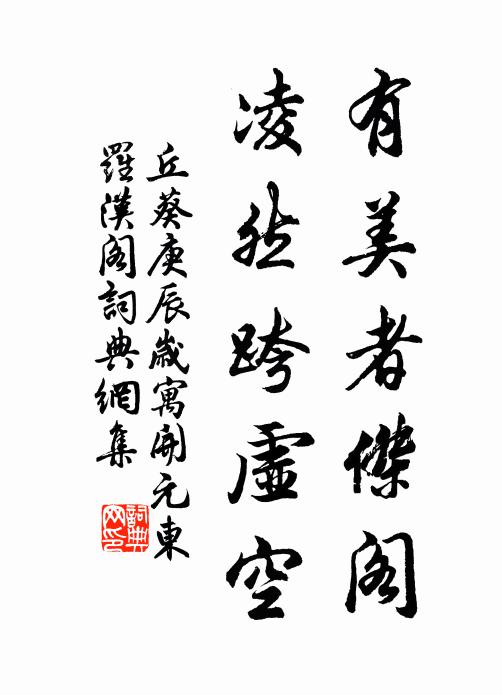 有美者傑閣
凌然跨虛空
丘葵庚辰歲寓開元東
羅漢閣詞典網集
詞典
网印